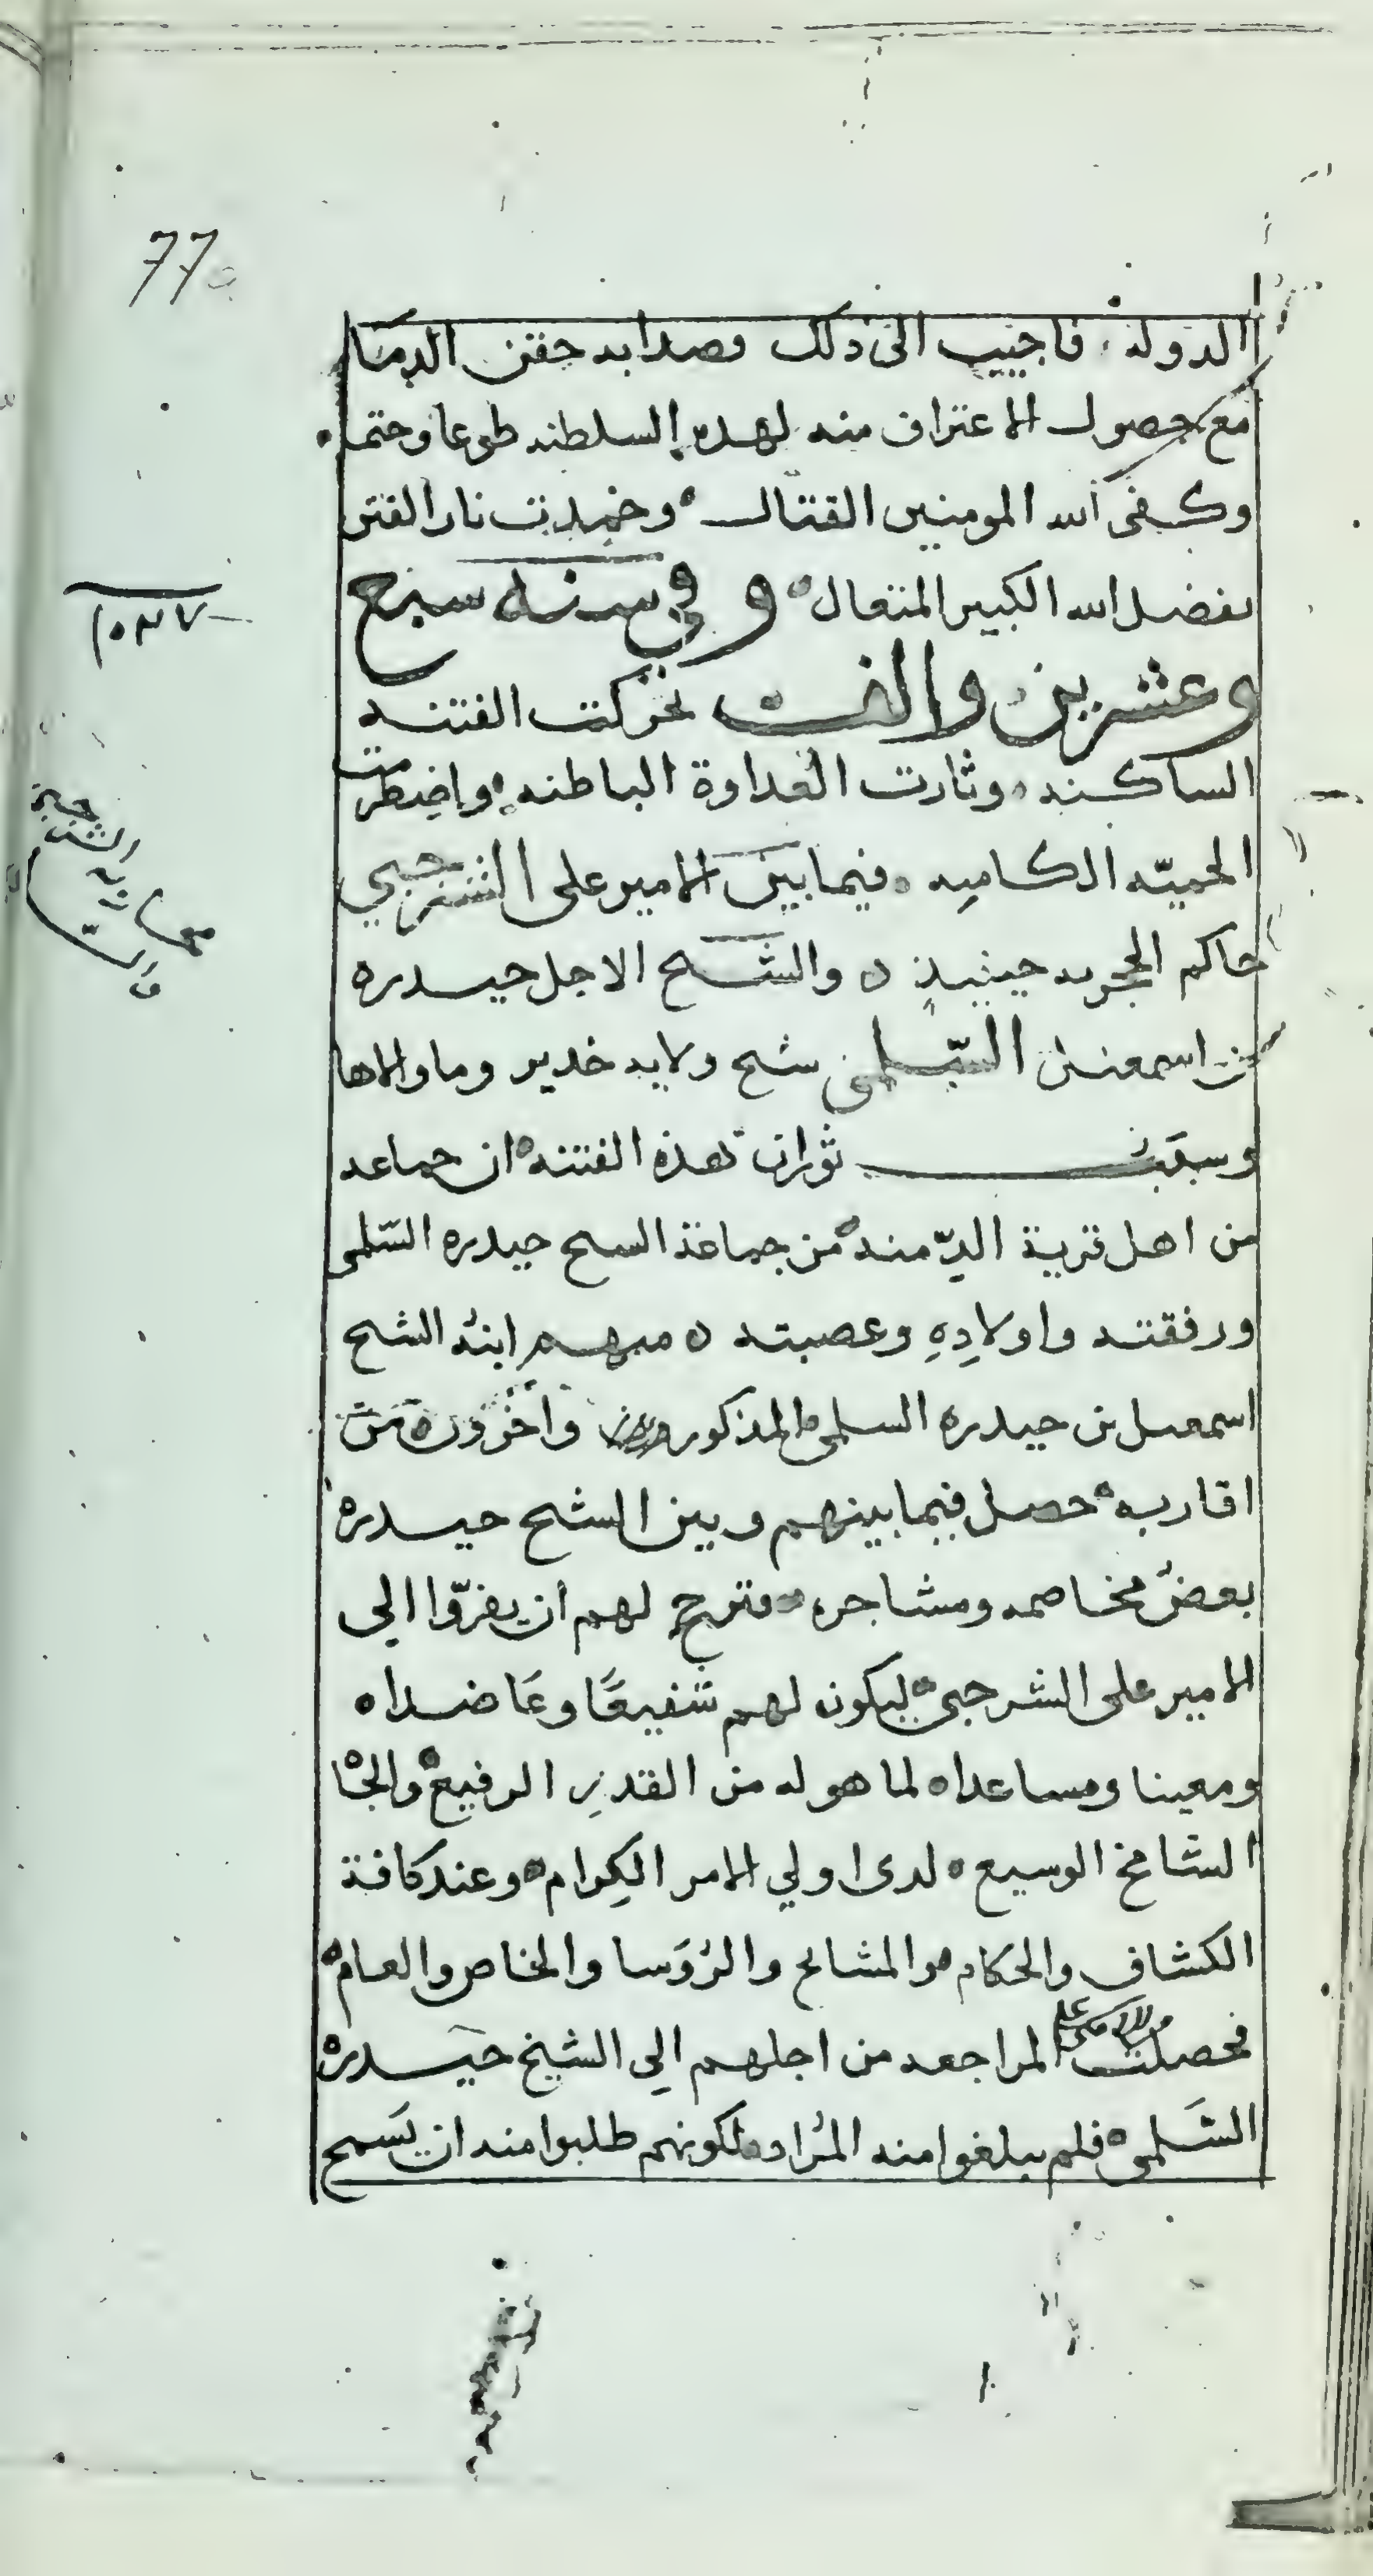 77
الدولة، فاجيب الى ذلك قصدا به حقن الدما
مع حصول الاعتراف منه لهذه السلطنه طوعا وحتما ه
وكفى الله المومنين القتال ه وخمدت نار الفتن
بفضل الله الكبير المتعال ه و في سنة سبع
وعشرين والف تحركت الفتنه
١٠٢٧
الساكنه ه وثارت العداوة الباطنه ه واضطرمت
الحميّه الكامنه ه فيما بين الامير على الشرجبي
حاكم الحجريه حينيذٍ ه والشيخ الاجل حيدره
بن اسمعيل السّلمى شيخ ولايه خدير وما والاها
وسبب ثوران هذه الفتنه ه ان جماعه
من اهل قرية الدّمنه ه من جماعة الشيخ حيدره السّلمى
ورفقته واولادِهِ وعصبته ه منهم ابنهُ الشيخ
اسمعيل بن حيدره السلمى المذكور واخرون ه من
اقاربه ه حصل فيما بينهم وبين الشيخ حيدره
بعضُ مخاصمه ومشاجره ه فترجح لهم ان يفرّوا الى
الامير على الشرجبى ه ليكون لهم شفيعًا وعَاضدا ه
ومعينا ومساعدا ه لما هو له من القدرِ الرفيع ه والجا
الشامخ الوسيع ه لدى اولي الامر الكِرام ه وعند كافة
الكشاف والحكام ه والمشايخ والرُوَسا والخاص والعام ه
فحصلت المراجعه من اجلهم الى الشيخ حيدره
السَلمى ه فلم يبلغوا منه المُراد ه لكونهم طلبوا منه ان يَسمح